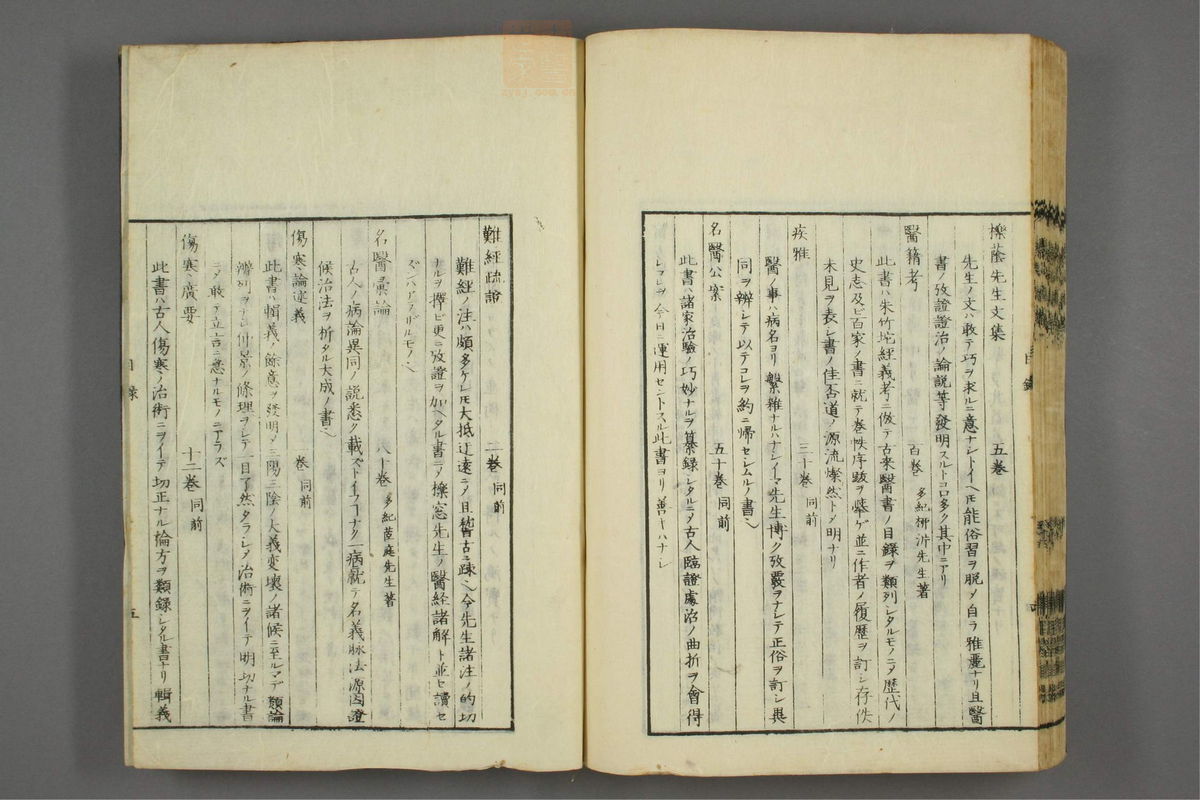 櫟蔭先生文集 五巻
先生ノ文ハ敢テ巧ヲ求ルニ意ナシトイヘ𪜈能俗習ヲ脱〆自ラ雅麗ナリ且醫
書ノ攷證證治ノ論説等發明スルトコロ多ク其中ニアリ
醫籍考 百巻 多紀柳沜先生著
此書ハ朱竹垞經義考ニ倣テ古来醫書ノ目録ヲ類列シタルモノニ〆歴代ノ
史志及ビ百家ノ書ニ就テ巻帙序跋ヲ挙ゲ並ニ作者ノ履歴ヲ訂シ存佚
未見ヲ表シ書ノ佳否道ノ源流燦然ト〆明ナリ
疾雅 三十巻 同前
醫ノ事ハ病名ヨリ繁雑ナルハナシイマ先生博ク攷覈ヲナシテ正俗ヲ訂シ異
同ヲ辨シテ以テコレヲ約ニ帰セシムルノ書也
名醫公案 五十巻 同前
此書ハ諸家治驗ノ巧妙ナルヲ纂録シタルニ〆古人臨證處治ノ曲折ヲ會得
シコレヲ今日ニ運用セントスル此書ヨリ善キハナシ
目録
難経疏證 二巻 同前
難経ノ注ハ頗多ケレ𪜈大抵迂遠ニ〆且稽古ニ疎也今先生諸注ノ的切
ナルヲ擇ビ更ニ攷證ヲ加ヘタル書ニ〆櫟窓先生ノ醫経諸解ト並セ讀セ
ズンバアラザルモノ也
名醫彙論 八十巻 多紀茝庭先生著
古人ノ病論異同ノ説悉ク載ズトイフコナク一病就テ名義脉法源因證
候治法ヲ析タル大成ノ書也
傷寒論述義 巻 同前
此書ハ輯義ノ餘意ヲ發明〆三陽三陰ノ大義変壊ノ諸候ニ至ルマデ類論
辨列ヲナシ仲景ノ條理ヲシテ一目了然タラシメ治術ニヲイテ明切ナル書
ニ〆敢テ立言ニ意ナルモノニアラズ
傷寒廣要 十二巻 同前
此書ハ古人傷寒ノ治術ニヲイテ切正ナル論方ヲ類録シタル書ナリ輯義
目録
五